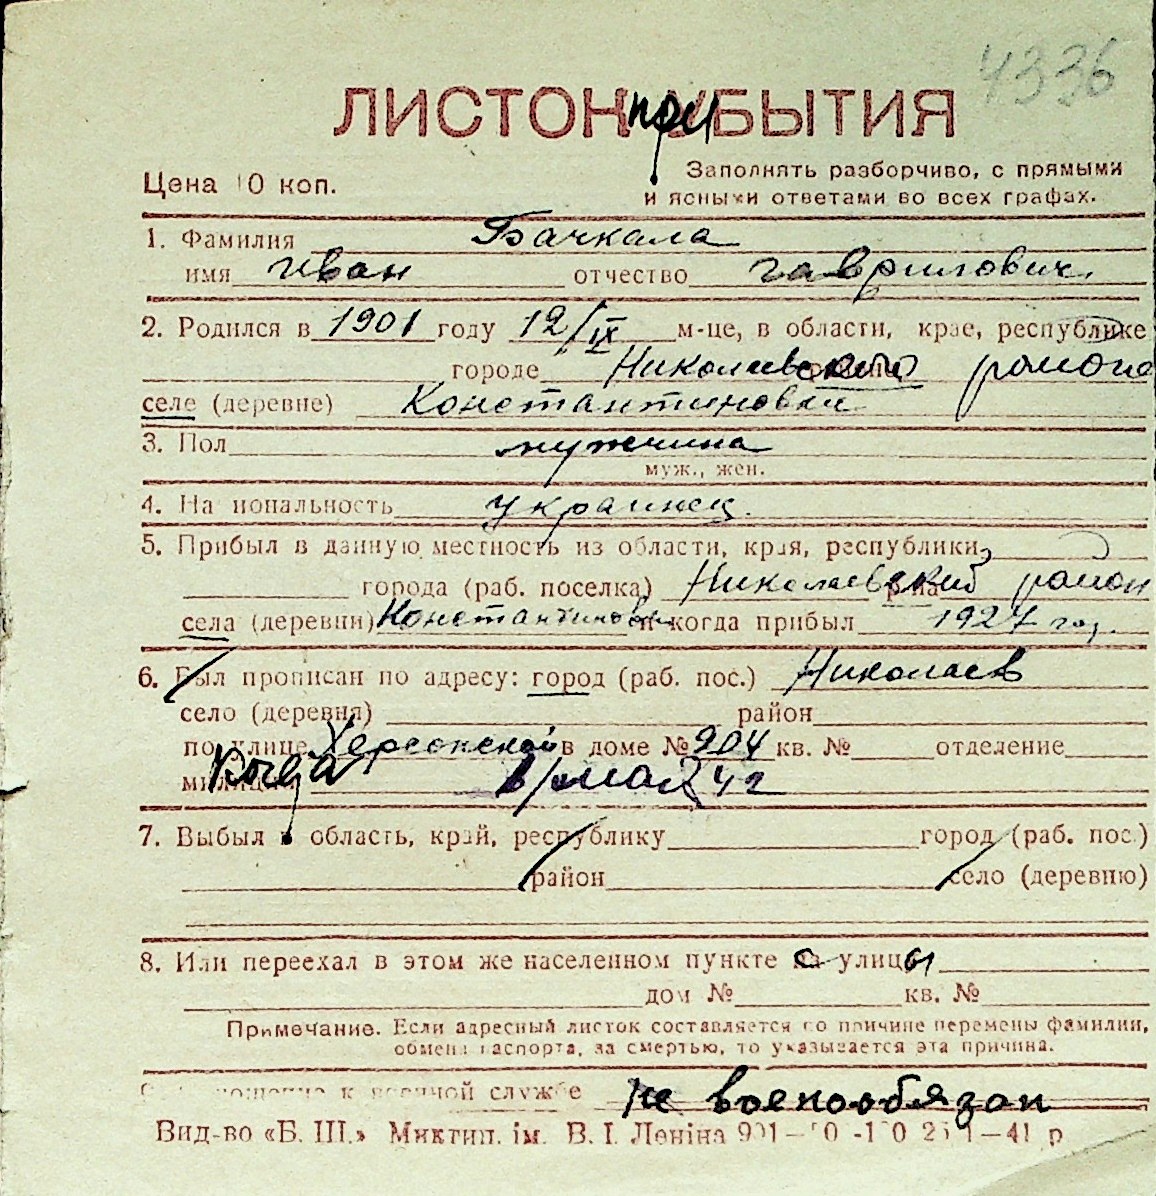 4336
ЛИСТОК при УБЫТИЯ
Цена 10 коп.
Заполнять разборчиво, с прямыми
и ясными ответами во всех графах.
1. Фамилия Бачкала
имя Иван отчество Гаврилович.
2. Родился в 1901 году 12/IX м-це, в области, крае, республике
городе Николаевского района
селе (деревне) Константиновки
3. Пол мужчина
муж., жен.
4. Национальность украинец.
5. Прибыл в данную местность из области, края, республики
города (раб. поселка) Николаевский район
села (деревни) Константиновки и когда прибыл 1927 год.
6. Был прописан по адресу: город (раб. пос.) Николаев
село (деревня) район
по улице Херсонской в доме № 904 кв. № отделение
милиции Когда 42
7. Выбыл в область, край, республику город (раб. пос.)
район село (деревню)
8. Или переехал в этом же населенном пункте с улицы
дом № кв. №
Примечание. Если адресный листок составляется по причине перемены фамилии,
обмена паспорта, за смертью, то указывается эта причина.
9. Отношение к военной службе не военообязан
Вид-во «Б. Ш.» Миктип. ім. В. І. Леніна